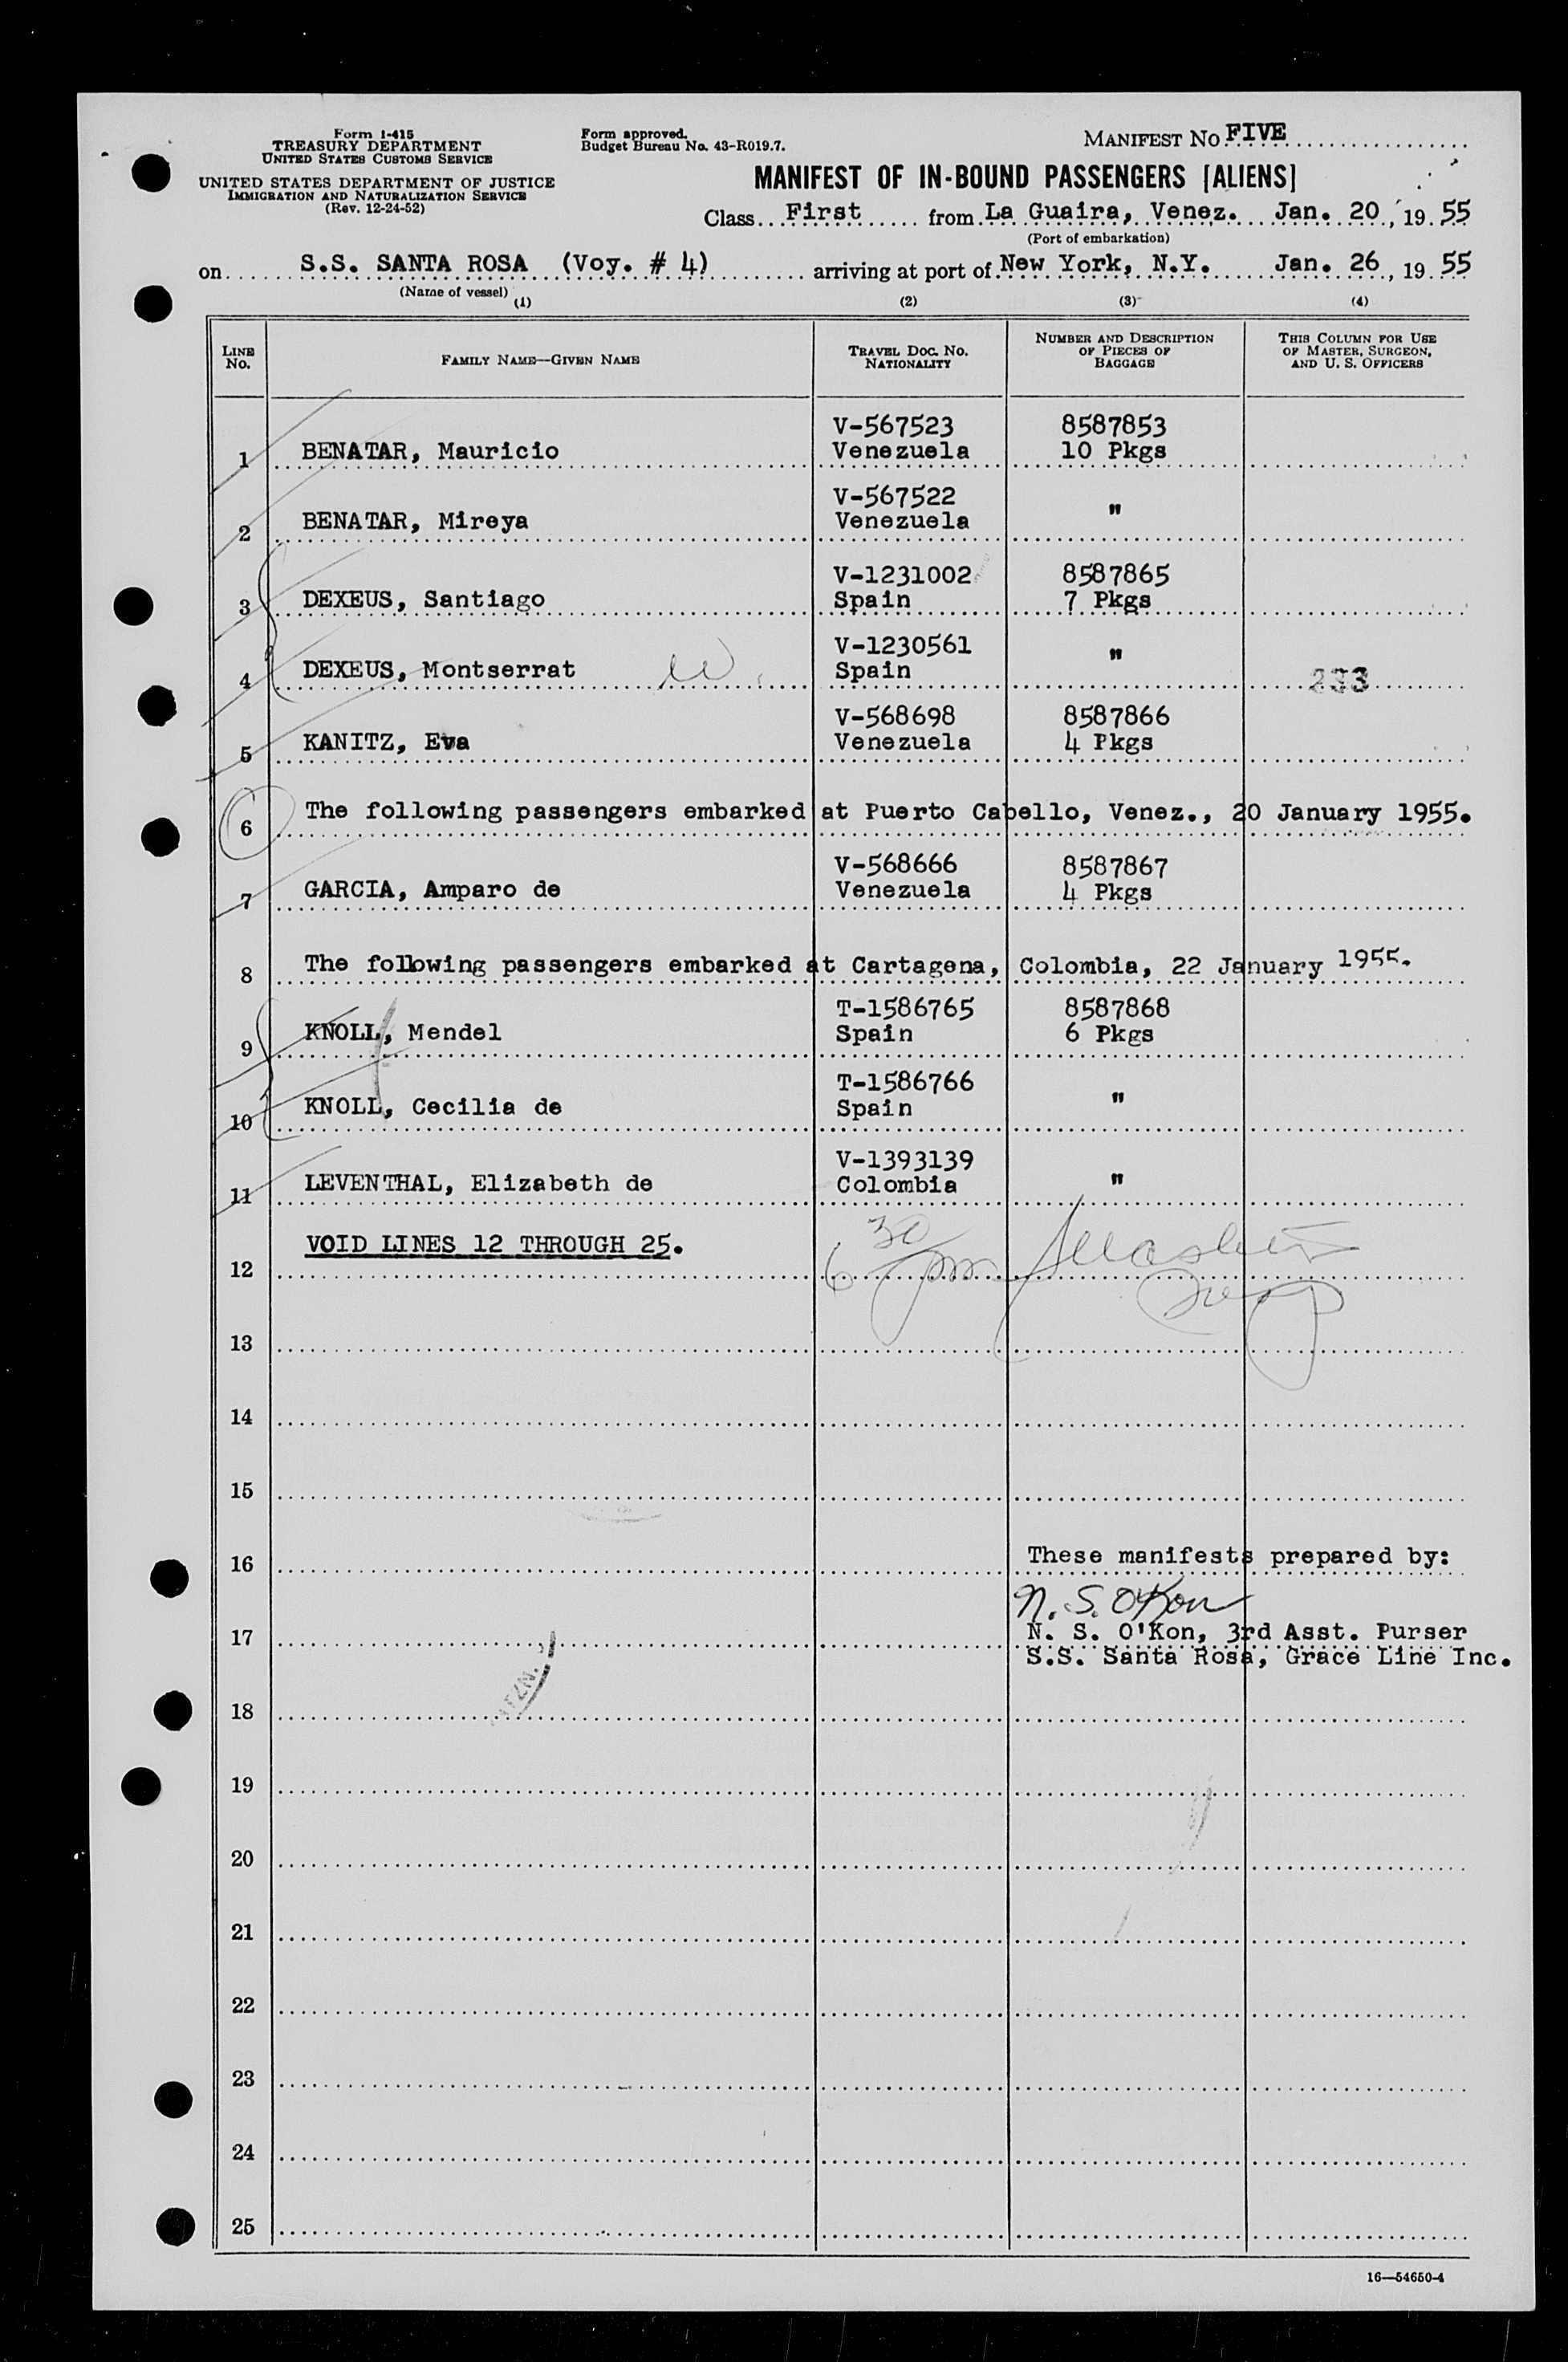 Form I-415
TREASURY DEPARTMENT
UNITED STATES CUSTOMS SERVICE
UNITED STATES DEPARTMENT OF JUSTICE
IMMIGRATION AND NATURALIZATION SERVICE
(Rev. 12-24-52)
Form approved.
Budget Bureau No. 43-R019.7.
MANIFEST NO. FIVE
MANIFEST OF IN-BOUND PASSENGERS [ALIENS]
Class First from La Guaira, Venez. Jan. 20, 19 55
(Port of embarkation)
on S.S. SANTA ROSA (Voy. # 4) arriving at port of New York, N.Y. Jan. 26, 19 55
(Name of vessel)
(1) (2) (3) (4)
LINE NO. FAMILY NAME—GIVEN NAME TRAVEL DOC. NO. NATIONALITY NUMBER AND DESCRIPTION OF PIECES OF BAGGAGE THIS COLUMN FOR USE OF MASTER, SURGEON, AND U. S. OFFICERS
V-567523 8587853
1 BENATAR, Mauricio Venezuela 10 Pkgs
V-567522
2 BENATAR, Mireya Venezuela "
V-1231002 8587865
3 DEXEUS, Santiago Spain 7 Pkgs
V-1230561
4 DEXEUS, Montserrat Spain " 233
V-568698 8587866
5 KANITZ, Eva Venezuela 4 Pkgs
6 The following passengers embarked at Puerto Cabello, Venez., 20 January 1955.
V-568666 8587867
7 GARCIA, Amparo de Venezuela 4 Pkgs
8 The following passengers embarked at Cartagena, Colombia, 22 January 1955.
T-1586765 8587868
9 KNOLL, Mendel Spain 6 Pkgs
T-1586766
10 KNOLL, Cecilia de Spain "
V-1393139
11 LEVENTHAL, Elizabeth de Colombia "
VOID LINES 12 THROUGH 25.
12 6 30 pm
13
14
15
16 These manifests prepared by:
N. S. O'Kon
17 N. S. O'Kon, 3rd Asst. Purser
S.S. Santa Rosa, Grace Line Inc.
18
19
20
21
22
23
24
25
16—54650-4